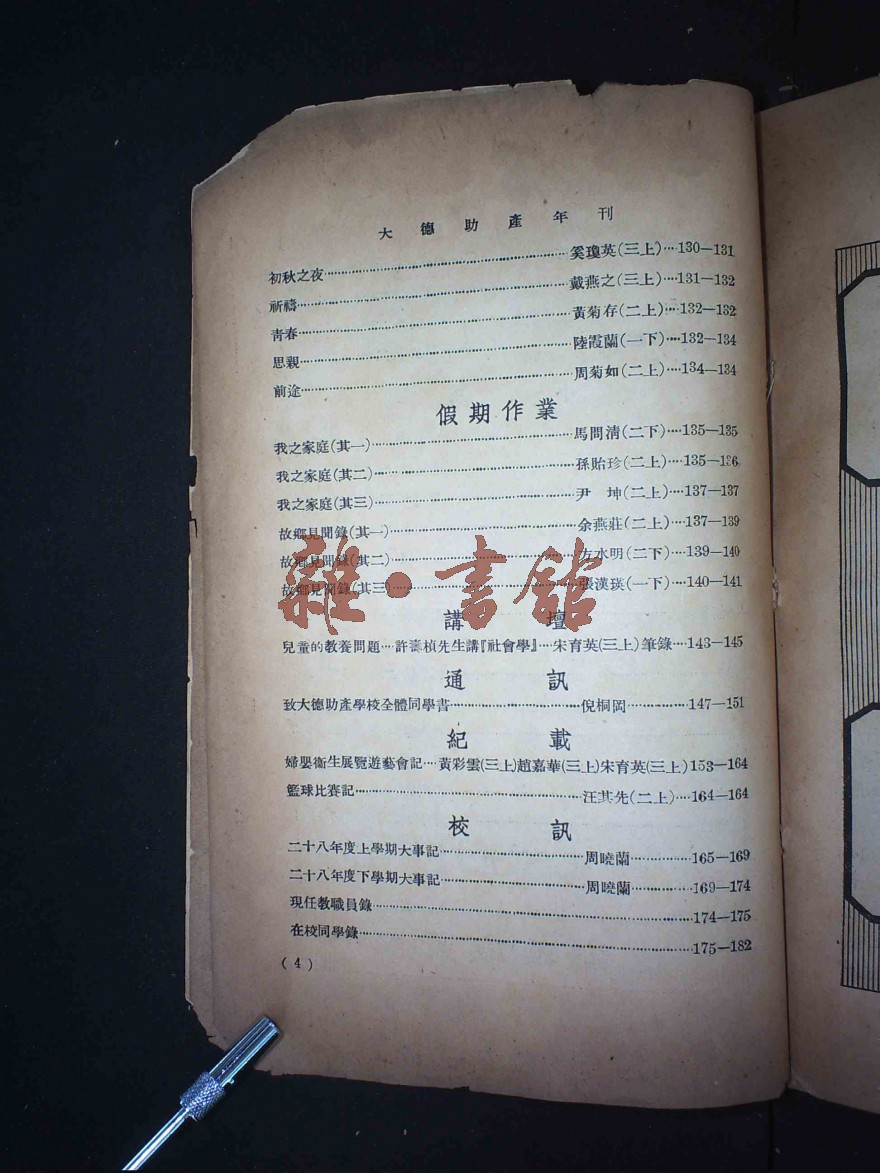 大德助產年刊
初秋之夜……奚瓊英(三上)…130—131
祈禱……戴燕之(三上)…131—132
青春……黃菊存(二上)…132—132
思親……陸霞蘭(一下)…132—134
前途……周菊如(二上)…134—134
假期作業
我之家庭(其一)……馬問清(二下)…135—135
我之家庭(其二)……孫貽珍(二上)…135—136
我之家庭(其三)……尹坤(二上)…137—137
故鄉見聞錄(其一)……余燕莊(二上)…137—139
故鄉見聞錄(其二)……方水明(二下)…139—140
故鄉見聞錄(其三)……張漢瑛(一下)…140—141
雜·書館
講壇
兒童的教養問題…許壽楨先生講『社會學』…朱育英(三上)筆錄…143—145
通訊
致大德助產學校全體同學書……倪桐岡……147—151
紀載
婦嬰衞生展覽遊藝會記…黃彩雲(三上)趙嘉華(三上)朱育英(三上)153—164
籃球比賽記……汪其先(二上)…164—164
校訊
二十八年度上學期大事記……周曉蘭……165—169
二十八年度下學期大事記……周曉蘭……169—174
現任教職員錄……174—175
在校同學錄……175—182
(4)